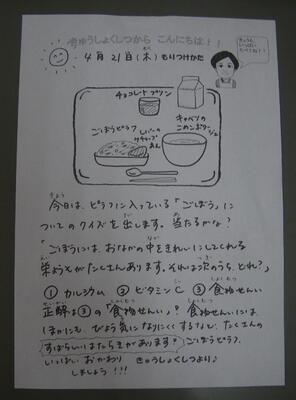 きゅうしょくしつから こんにちは!!
4月 21日(木) もりつけかた
チョコレートプリン
キャベツの
ごぼうピラフ
レバーの
ケチャップ
あん
今日は、ピラフに入っている「ごぼう」に
ついてのクイズを出します。当たるかな?
「ごぼうには、おなかの中をきれいにしてくれる
栄ようそがたくさんあります。それは次のうち、どれ?」
① カルシウム ② ビタミンC ③ 食物せんい
正解は③の「食物せんい」? 食物せんいには
ほかにも、びょう気になりにくくするなど、たくさんの
すばらしいはたらきがあります? ごぼうピラフ、
いっぱい おかわり きゅうしょくしつより♪
しましょう!!!